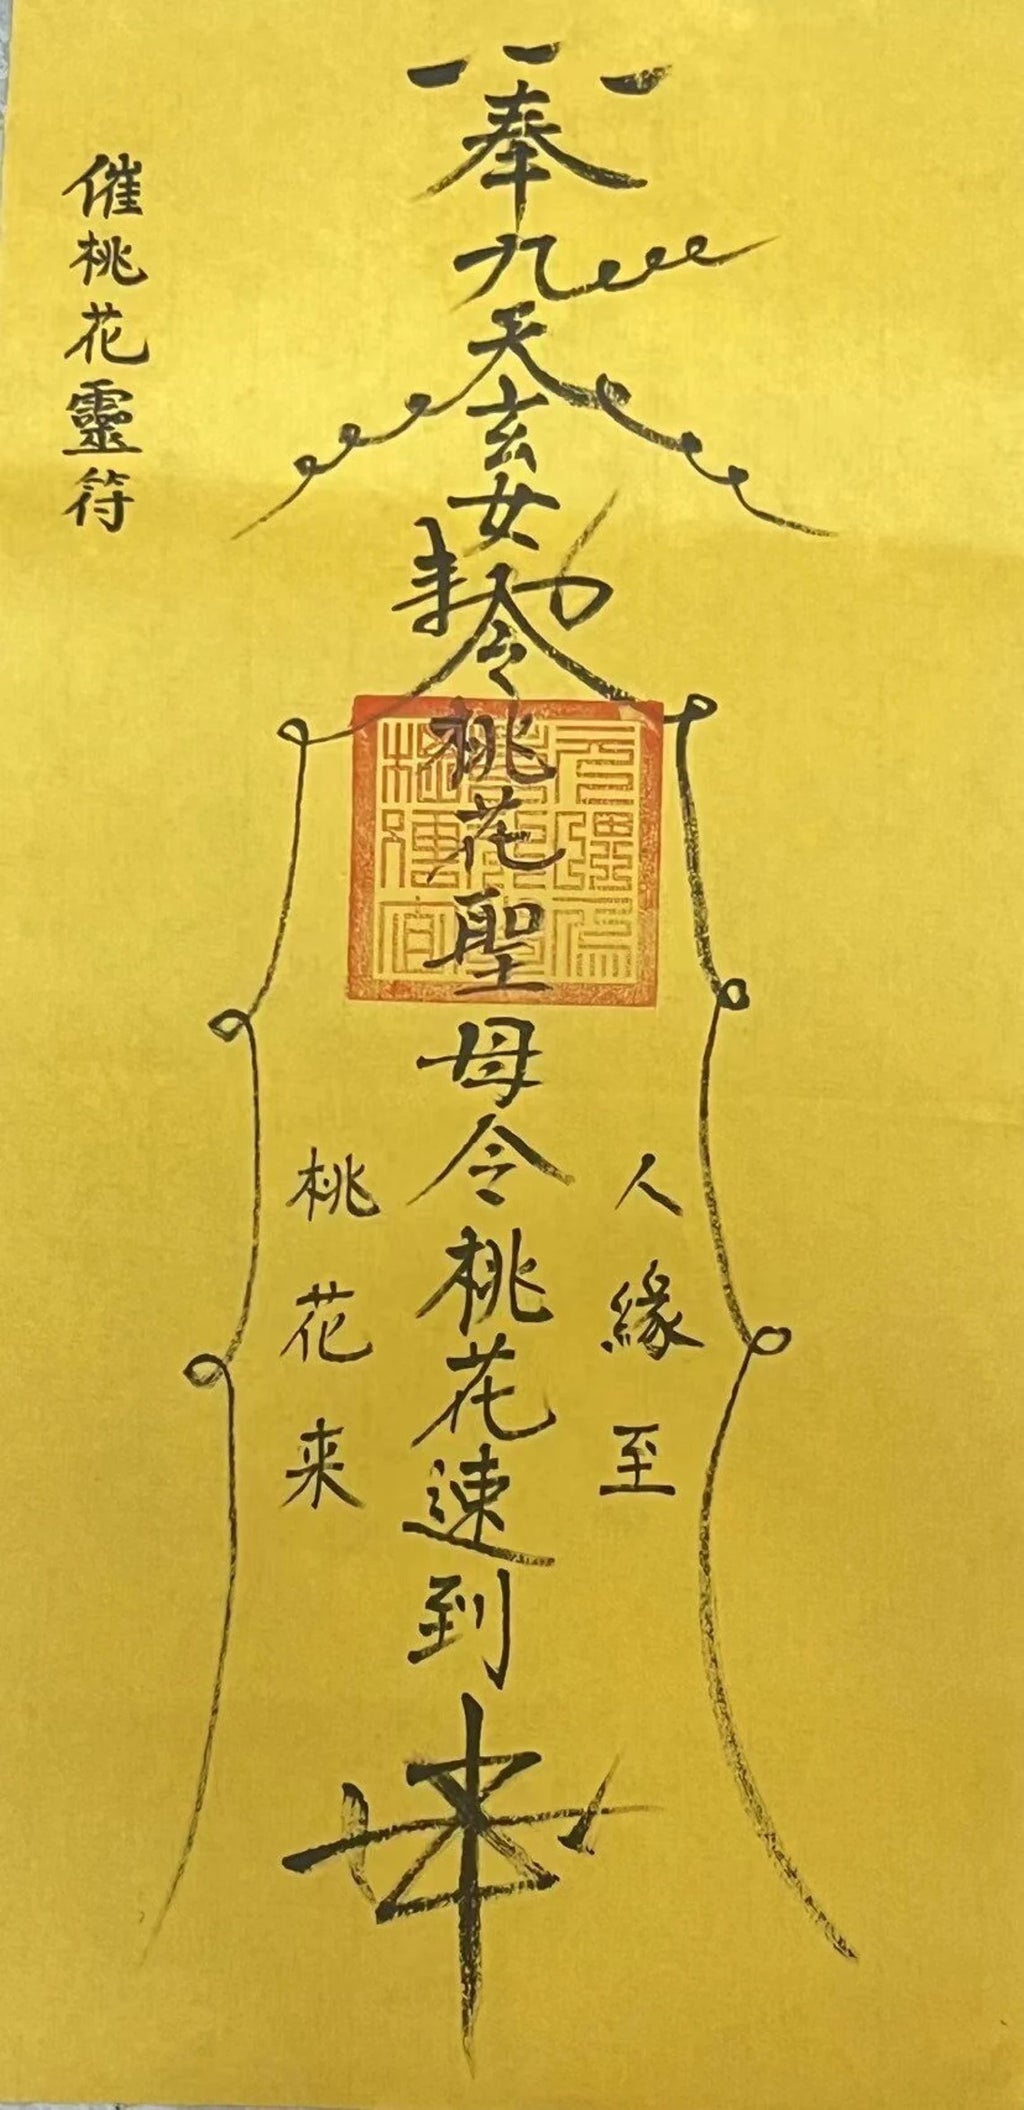 催桃花靈符
奉九天玄女敕令桃花聖母令桃花速到
人緣至
桃花来